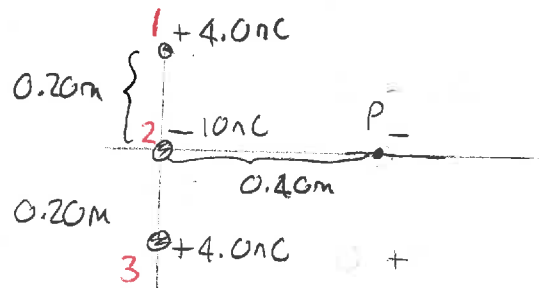 1 +4.0nC
0.20m
2 -10nC
P
0.40m
0.20m
3 +4.0nC
+